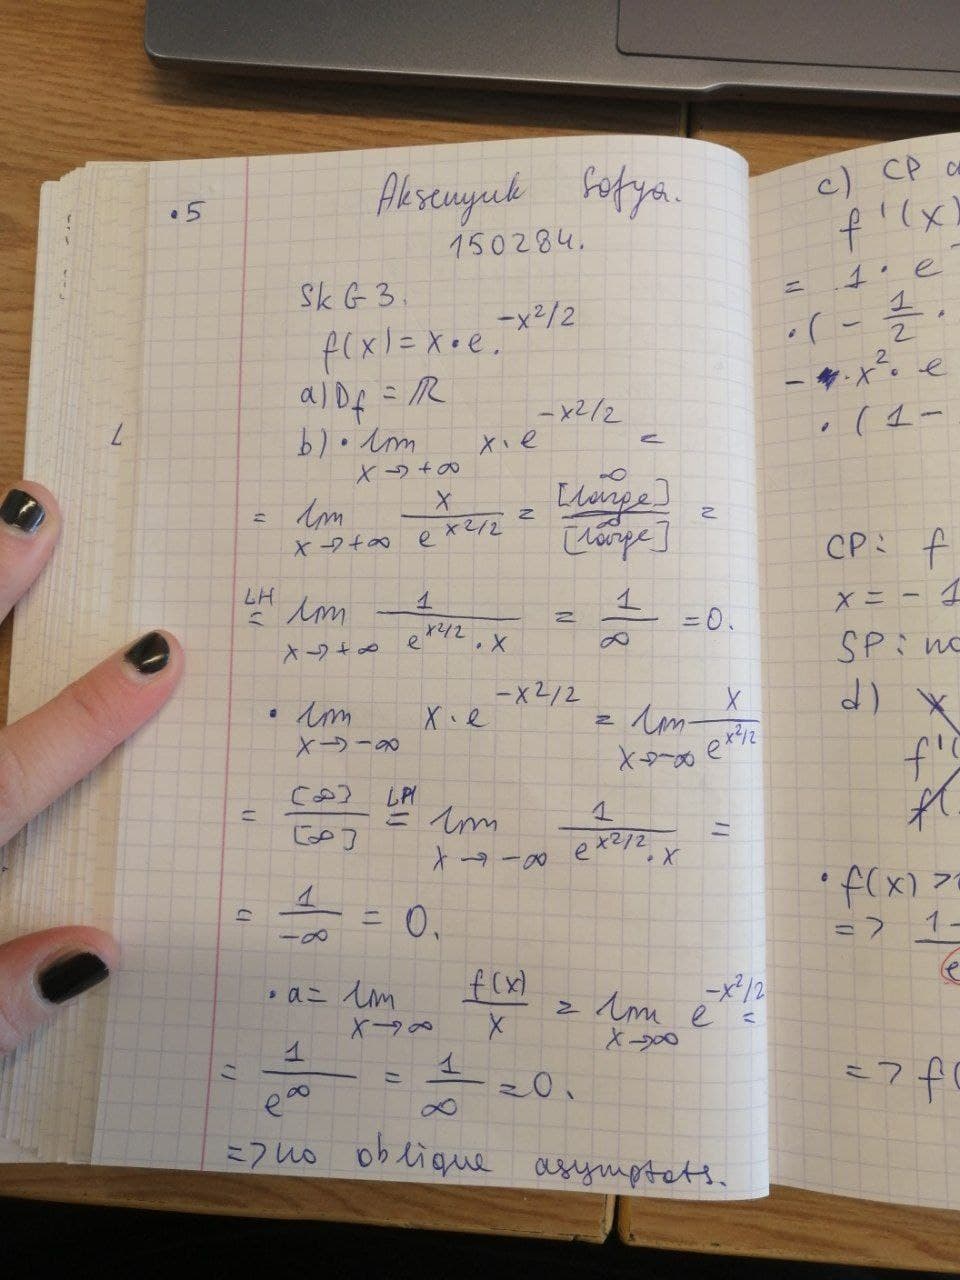 .5
Aksenyuk Sofya.
150284.
Sk G 3.
f(x) = x·e^{-x²/2}.
a) D_f = ℝ
b) · lim_{x→+∞} x·e^{-x²/2} =
= lim_{x→+∞} x / e^{x²/2} = [large] ∞ / [large] ∞ =
LH = lim_{x→+∞} 1 / (e^{x²/2}·x) = 1/∞ = 0.
· lim_{x→-∞} x·e^{-x²/2} = lim_{x→-∞} x / e^{x²/2}
= [∞]/[∞] LH = lim_{x→-∞} 1 / (e^{x²/2}·x) =
= 1/-∞ = 0.
· a = lim_{x→∞} f(x)/x = lim_{x→∞} e^{-x²/2} =
= 1/e^∞ = 1/∞ = 0.
=> no oblique asymptots.
c) CP
f'(x)
= 1 · e
·( - 1/2 ·
- · x² · e
· ( 1 -
CP: f
x = - 1
SP: no
d) x
f'(
f(
· f(x) >
=> 1-
e
=> f(